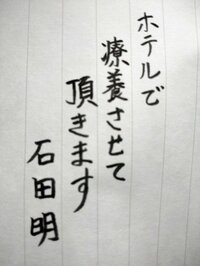 ホテルで
療養させて
頂きます
石田明